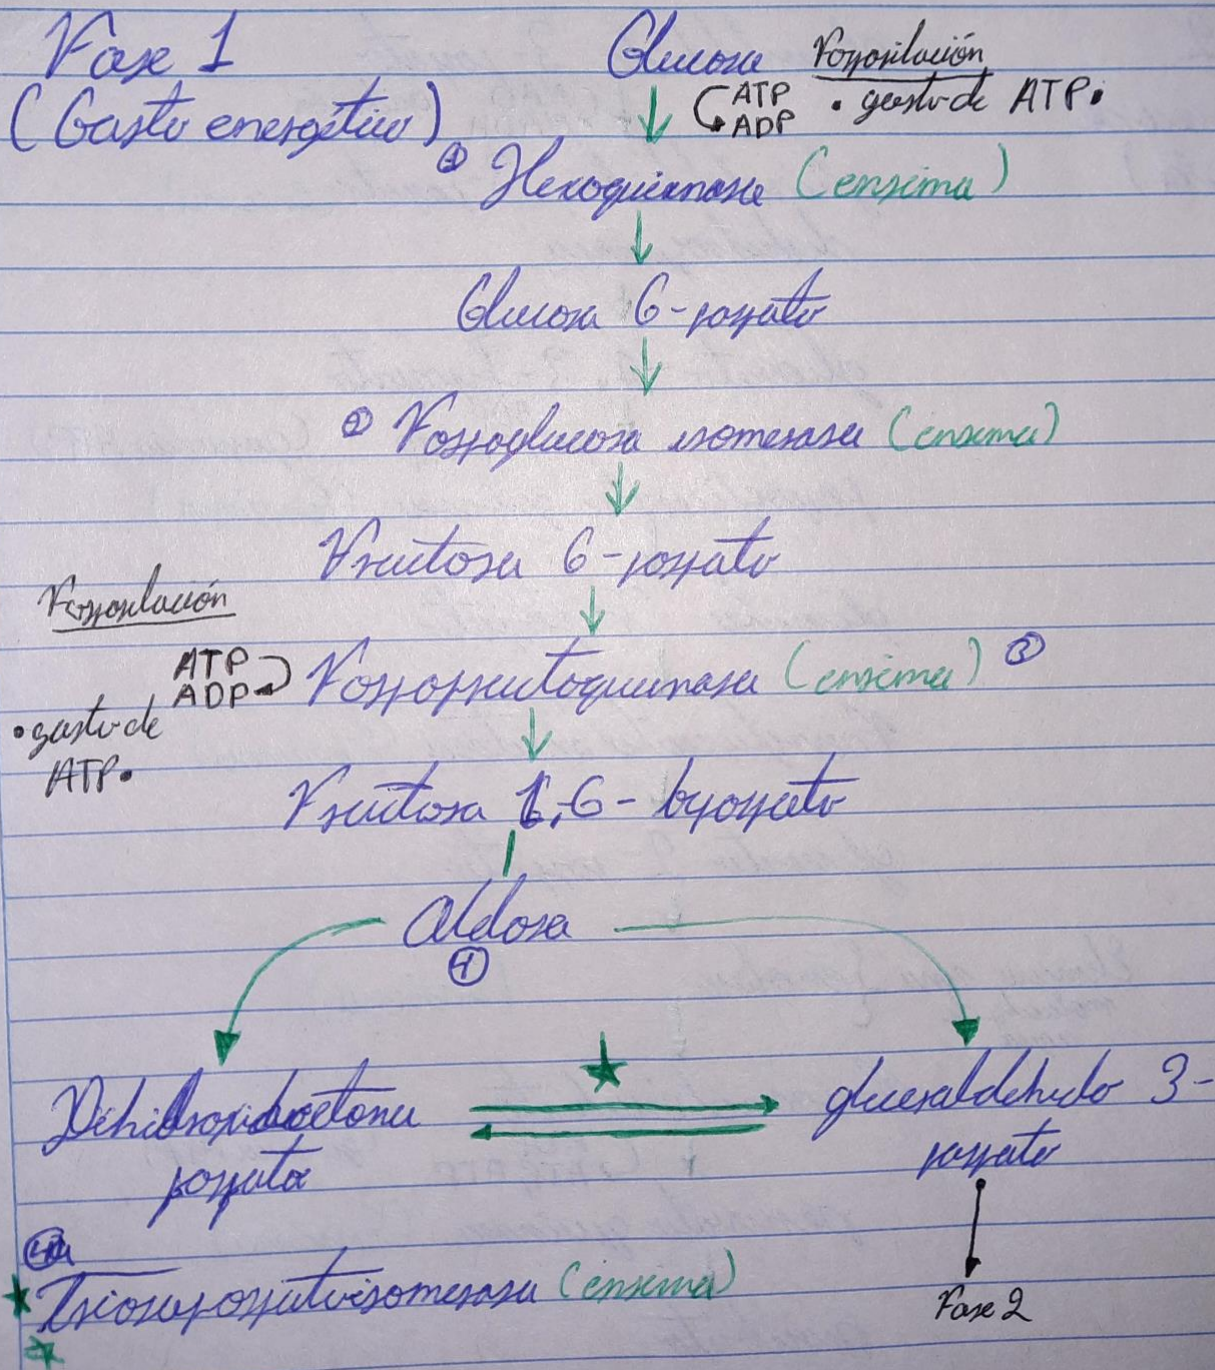 Fase 1
(Gasto energético)
Glucosa
Fosforilación
ATP
ADP
• gasto de ATP•
① Hexoquinasa (ensima)
Glucosa 6-fosfato
② Fosfoglucosa isomerasa (ensima)
Fructosa 6-fosfato
Fosforilación
ATP
ADP
• gasto de
ATP•
Fosfofructoquinasa (ensima) ③
Fructosa 1,6-bifosfato
Aldosa
④
Dehidroxidocetona
fosfata
gliceraldehido 3-
fosfato
Triosafosfatoisomerasa (ensima)
Fase 2